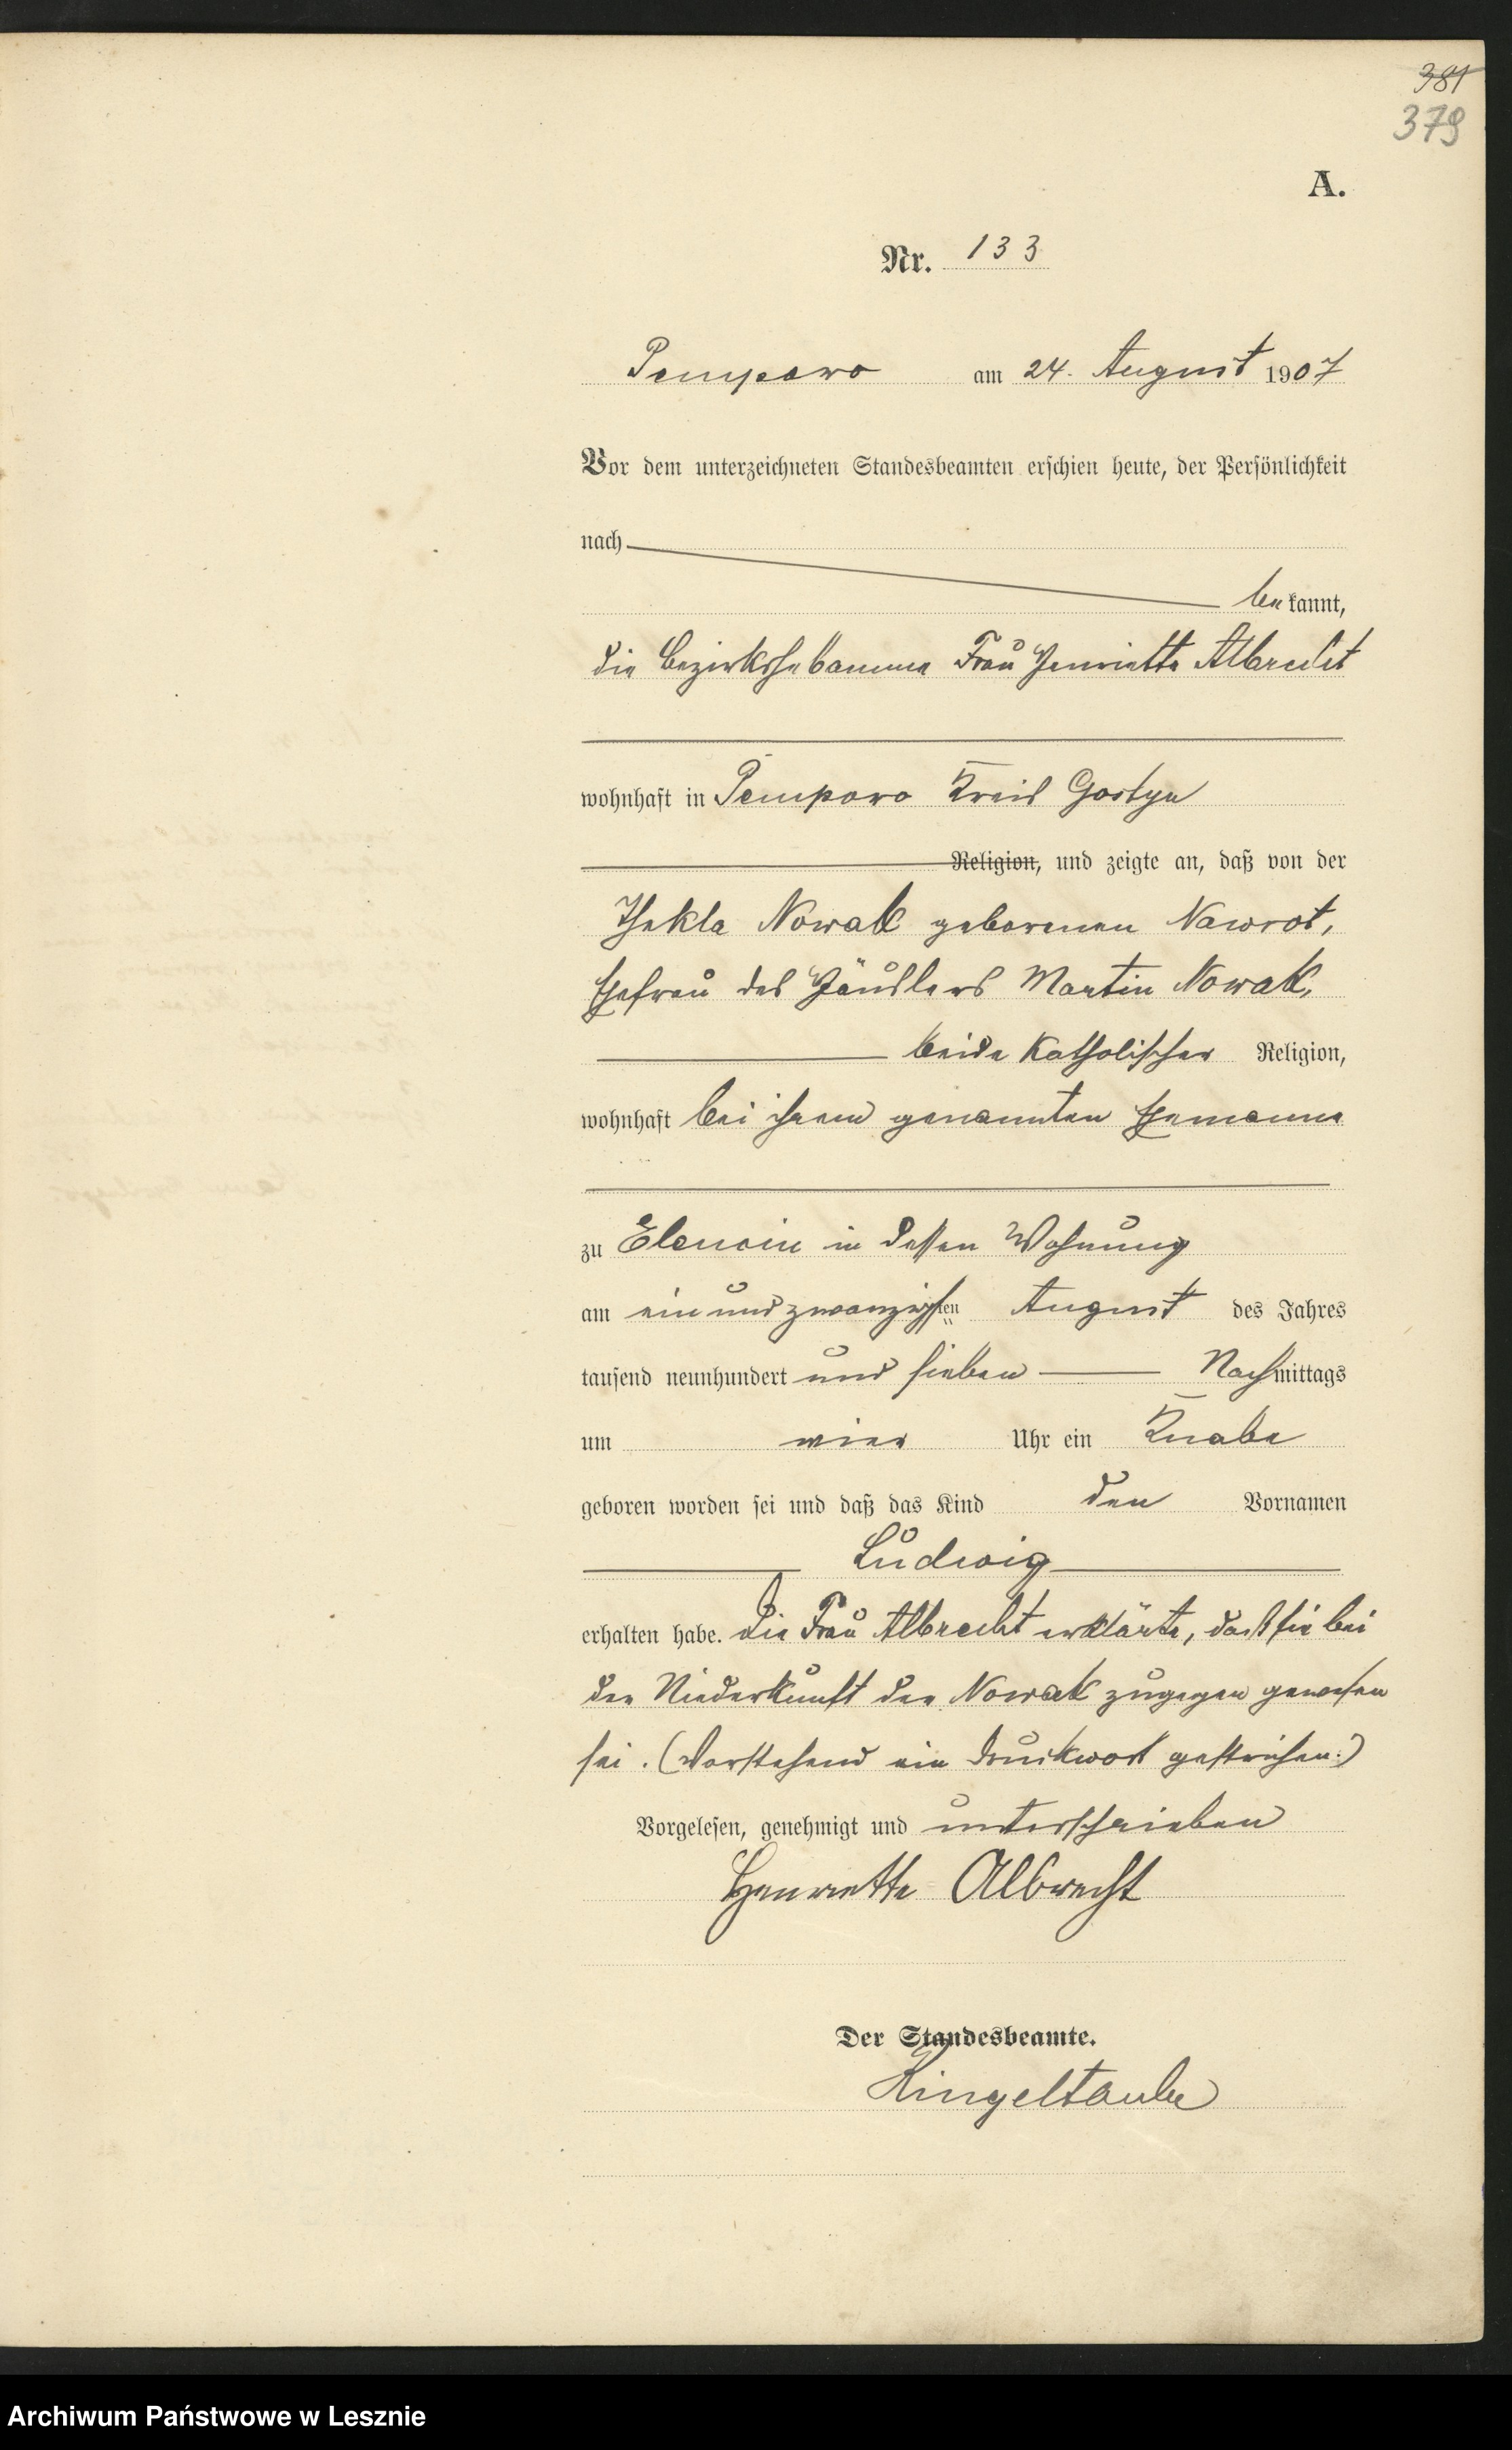 381
379
A.
Nr. 133
Pempowo am 24. August 1907
Vor dem unterzeichneten Standesbeamten erschien heute, der Persönlichkeit
nach
bekannt,
die Bezirkshebamme Frau Henriette Albrecht
wohnhaft in Pempowo Kreis Gostyn
Religion, und zeigte an, daß von der
Thekla Nowak geborenen Nawrot,
Ehefrau des Häuslers Martin Nowak,
beide katholischer Religion,
wohnhaft bei ihrem genannten Ehemanne
zu in dessen Wohnung
am ein und zwanzigsten August des Jahres
tausend neunhundert und sieben Nachmittags
um vier Uhr ein Knabe
geboren worden sei und daß das Kind den Vornamen
Ludwig
erhalten habe. Die Frau Albrecht erklärte, daß sie bei
der Niederkunft der Nowak zugegen gewesen
sei. (Vorstehend ein Druckwort gestrichen.)
Vorgelesen, genehmigt und unterschrieben
Henriette Albrecht
Der Standesbeamte.
Ringeltaube
Archiwum Państwowe w Lesznie